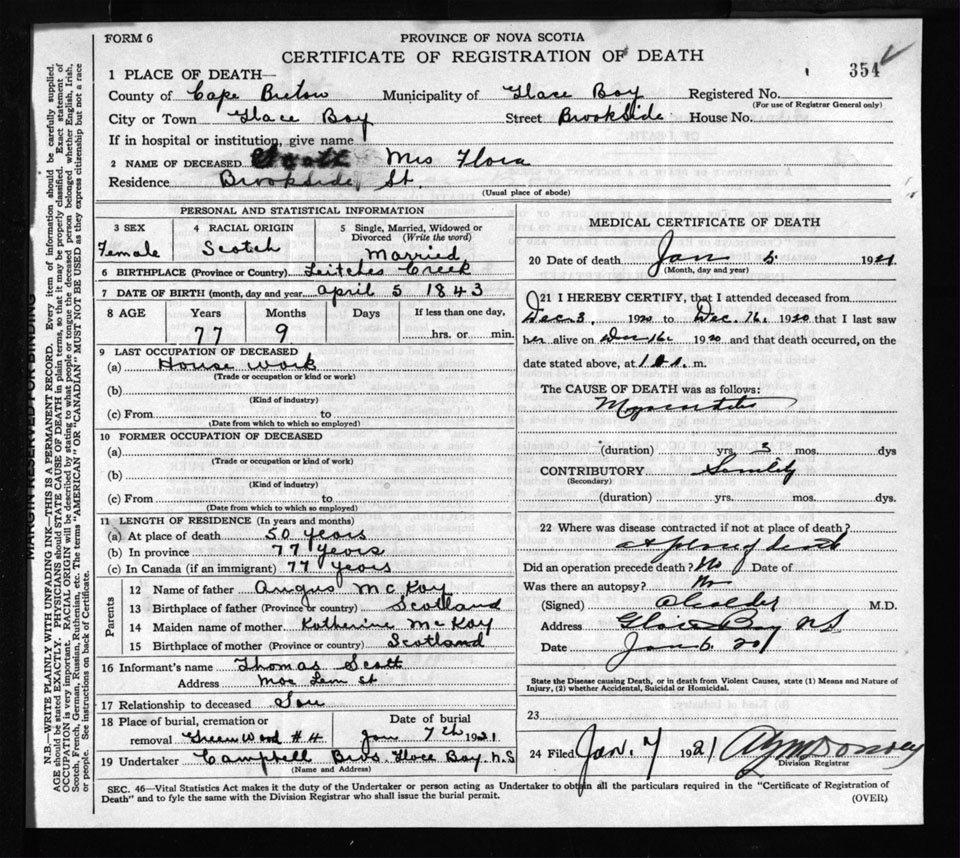 FORM 6
PROVINCE OF NOVA SCOTIA
CERTIFICATE OF REGISTRATION OF DEATH
354
1 PLACE OF DEATH—
County of Cape Breton Municipality of Glace Bay Registered No.
(For use of Registrar General only)
City or Town Glace Bay Street Brookside House No.
If in hospital or institution, give name
2 NAME OF DECEASED Scott Mrs Flora
Residence Brookside St.
(Usual place of abode)
PERSONAL AND STATISTICAL INFORMATION
3 SEX 4 RACIAL ORIGIN 5 Single, Married, Widowed or Divorced (Write the word)
Female Scotch Married
6 BIRTHPLACE (Province or Country) Leitches Creek
7 DATE OF BIRTH (month, day and year) April 5 1843
8 AGE Years Months Days If less than one day,
77 9 hrs. or min.
9 LAST OCCUPATION OF DECEASED
(a) House work
(Trade or occupation or kind or work)
(b)
(Kind of industry)
(c) From to
(Date from which to which so employed)
10 FORMER OCCUPATION OF DECEASED
(a)
(Trade or occupation or kind of work)
(b)
(Kind of industry)
(c) From to
(Date from which to which so employed)
11 LENGTH OF RESIDENCE (In years and months)
(a) At place of death 50 years
(b) In province 77 years
(c) In Canada (if an immigrant) 77 years
Parents
12 Name of father Angus McKay
13 Birthplace of father (Province or country) Scotland
14 Maiden name of mother Katherine McKay
15 Birthplace of mother (Province or country) Scotland
16 Informant's name Thomas Scott
Address
17 Relationship to deceased Son
18 Place of burial, cremation or Date of burial
removal Greenwood #4 Jan 7th 1921
19 Undertaker Campbell Bros. Glace Bay. N.S
(Name and Address)
MEDICAL CERTIFICATE OF DEATH
20 Date of death Jan 5 1921
(Month, day and year)
21 I HEREBY CERTIFY, that I attended deceased from
Dec 3. 1920 to Dec. 16. 1920 that I last saw
her alive on Dec 16. 1920 and that death occurred, on the
date stated above, at m.
The CAUSE OF DEATH was as follows:
(duration) yrs. 3 mos. dys
CONTRIBUTORY Senility
(Secondary)
(duration) yrs. mos. dys.
22 Where was disease contracted if not at place of death?
at place of death
Did an operation precede death? No Date of
Was there an autopsy? No
(Signed) M.D.
Address Glace Bay NS
Date Jan 6. 20
State the Disease causing Death, or in death from Violent Causes, state (1) Means and Nature of
Injury, (2) whether Accidental, Suicidal or Homicidal.
23
24 Filed Jan. 7 1921
Division Registrar
SEC. 46—Vital Statistics Act makes it the duty of the Undertaker or person acting as Undertaker to obtain all the particulars required in the "Certificate of Registration of
Death" and to fyle the same with the Division Registrar who shall issue the burial permit.
(OVER)
MARGIN RESERVED FOR BINDING
N.B.—WRITE PLAINLY WITH UNFADING INK—THIS IS A PERMANENT RECORD. Every item of information should be carefully supplied.
AGE should be stated EXACTLY. PHYSICIANS should STATE CAUSE OF DEATH in plain terms, so that it may be properly classified. Exact statement of
OCCUPATION is very important. RACIAL ORIGIN will be described by stating to what people or tongue the deceased person belonged whether English, Irish,
Scotch, French, German, Russian, Ruthenian, etc. The terms "AMERICAN" OR "CANADIAN" MUST NOT BE USED as they express citizenship but not a race
or people. See instructions on back of Certificate.